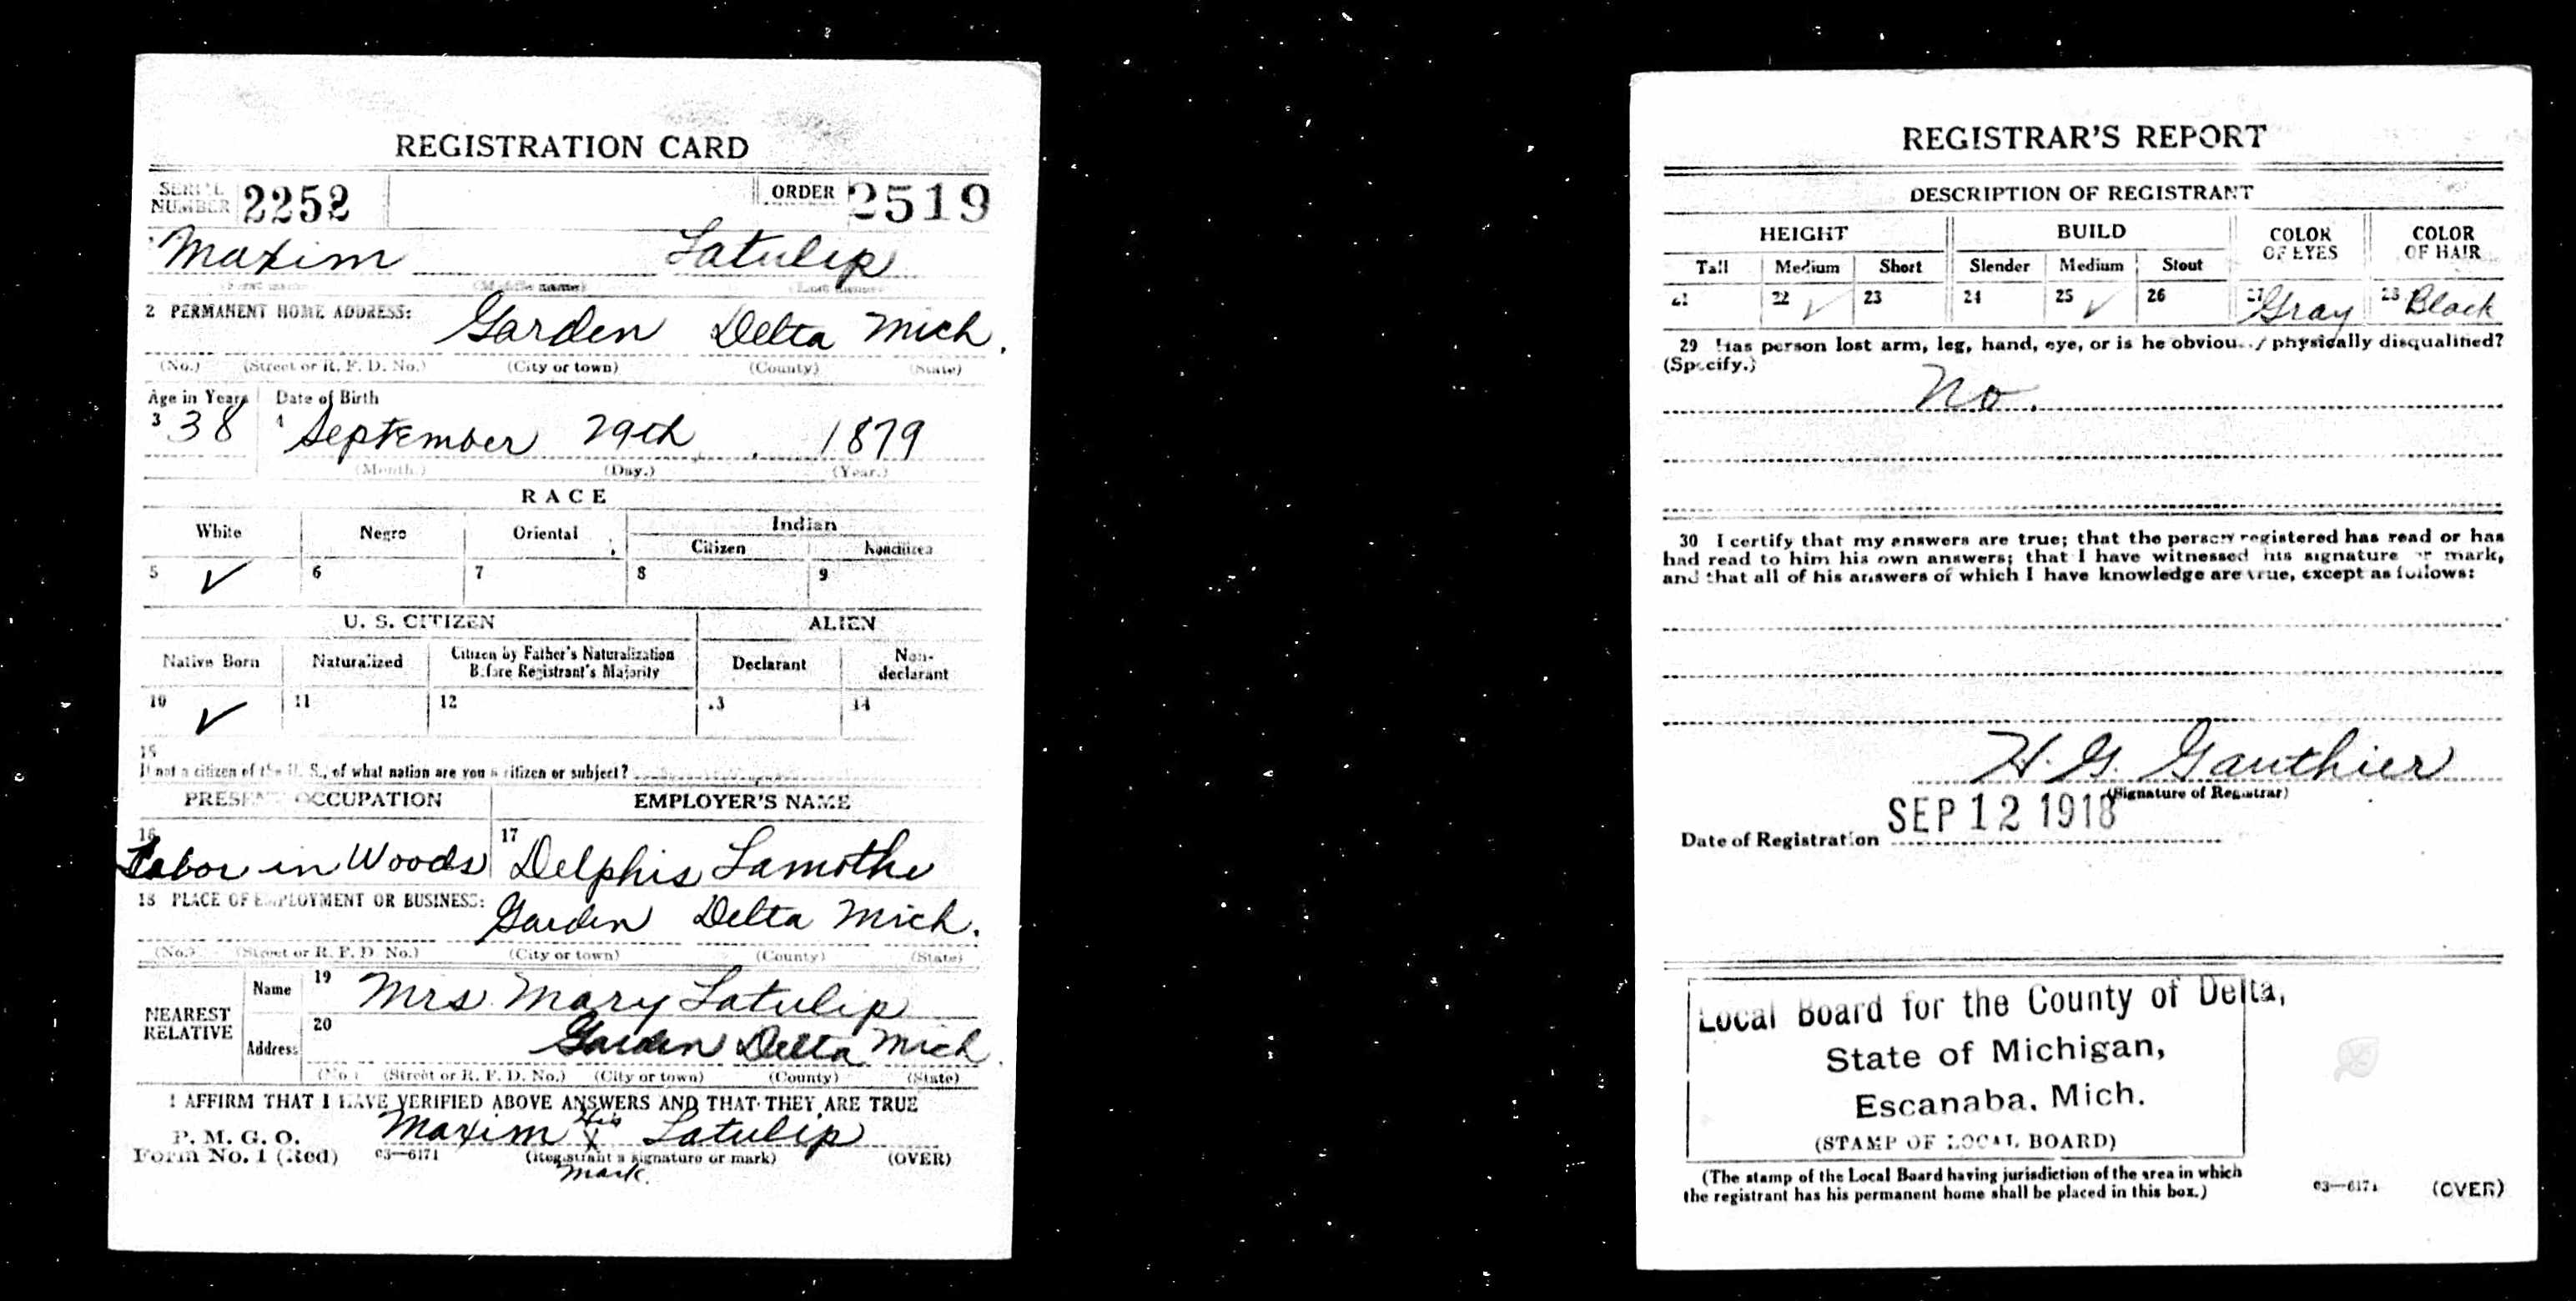 REGISTRATION CARD
SERIAL NUMBER 2252 ORDER 2519
1 Maxim Latulip
(First name) (Middle name) (Last name)
2 PERMANENT HOME ADDRESS: Garden Delta Mich.
(No.) (Street or R. F. D. No.) (City or town) (County) (State)
Age in Years Date of Birth
3 38 4 September 29th 1879
(Month.) (Day.) (Year.)
RACE
White Negro Oriental Indian
Citizen Noncitizen
5 ✓ 6 7 8 9
U. S. CITIZEN ALIEN
Native Born Naturalized Citizen by Father's Naturalization Before Registrant's Majority Declarant Non-declarant
10 ✓ 11 12 13 14
15
If not a citizen of the U. S., of what nation are you a citizen or subject?
PRESENT OCCUPATION EMPLOYER'S NAME
16 Labor in Woods 17 Delphis Lamothe
18 PLACE OF EMPLOYMENT OR BUSINESS: Garden Delta Mich.
(No.) (Street or R. F. D. No.) (City or town) (County) (State)
NEAREST RELATIVE Name 19 Mrs. Mary Latulip
Address 20 Garden Delta Mich.
(No.) (Street or R. F. D. No.) (City or town) (County) (State)
I AFFIRM THAT I HAVE VERIFIED ABOVE ANSWERS AND THAT THEY ARE TRUE
P. M. G. O.
Form No. 1 (Red) 03—6171 Maxim His X Latulip
(Registrant's signature or mark) (OVER)
mark.
REGISTRAR'S REPORT
DESCRIPTION OF REGISTRANT
HEIGHT BUILD COLOR OF EYES COLOR OF HAIR
Tall Medium Short Slender Medium Stout
21 22 ✓ 23 24 25 ✓ 26 27 Gray 28 Black
29 Has person lost arm, leg, hand, eye, or is he obviously physically disqualified?
(Specify.)
No.
30 I certify that my answers are true; that the person registered has read or has
had read to him his own answers; that I have witnessed his signature or mark,
and that all of his answers of which I have knowledge are true, except as follows:
H. G. Gauthier
(Signature of Registrar)
Date of Registration SEP 12 1918
Local Board for the County of Delta,
State of Michigan,
Escanaba, Mich.
(STAMP OF LOCAL BOARD)
(The stamp of the Local Board having jurisdiction of the area in which
the registrant has his permanent home shall be placed in this box.)
03—6171 (OVER)